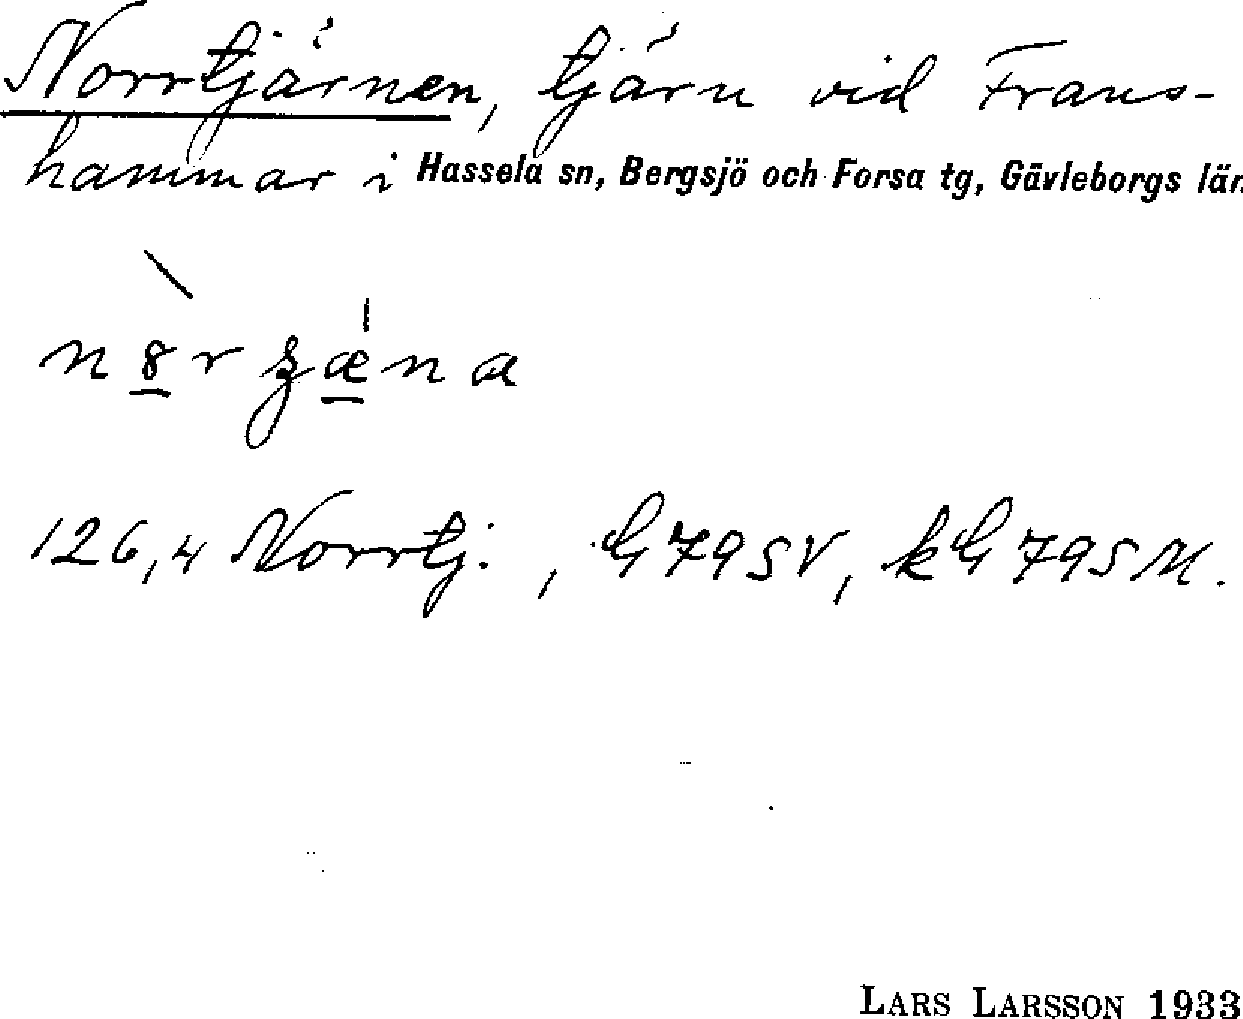 Norrtjärnen, tjärn vid Frans-
hammar i Hassela sn, Bergsjö och Forsa tg, Gävleborgs län
126,4 Norrtj. , G 79 SV, kG 79 SM.
LARS LARSSON 1933